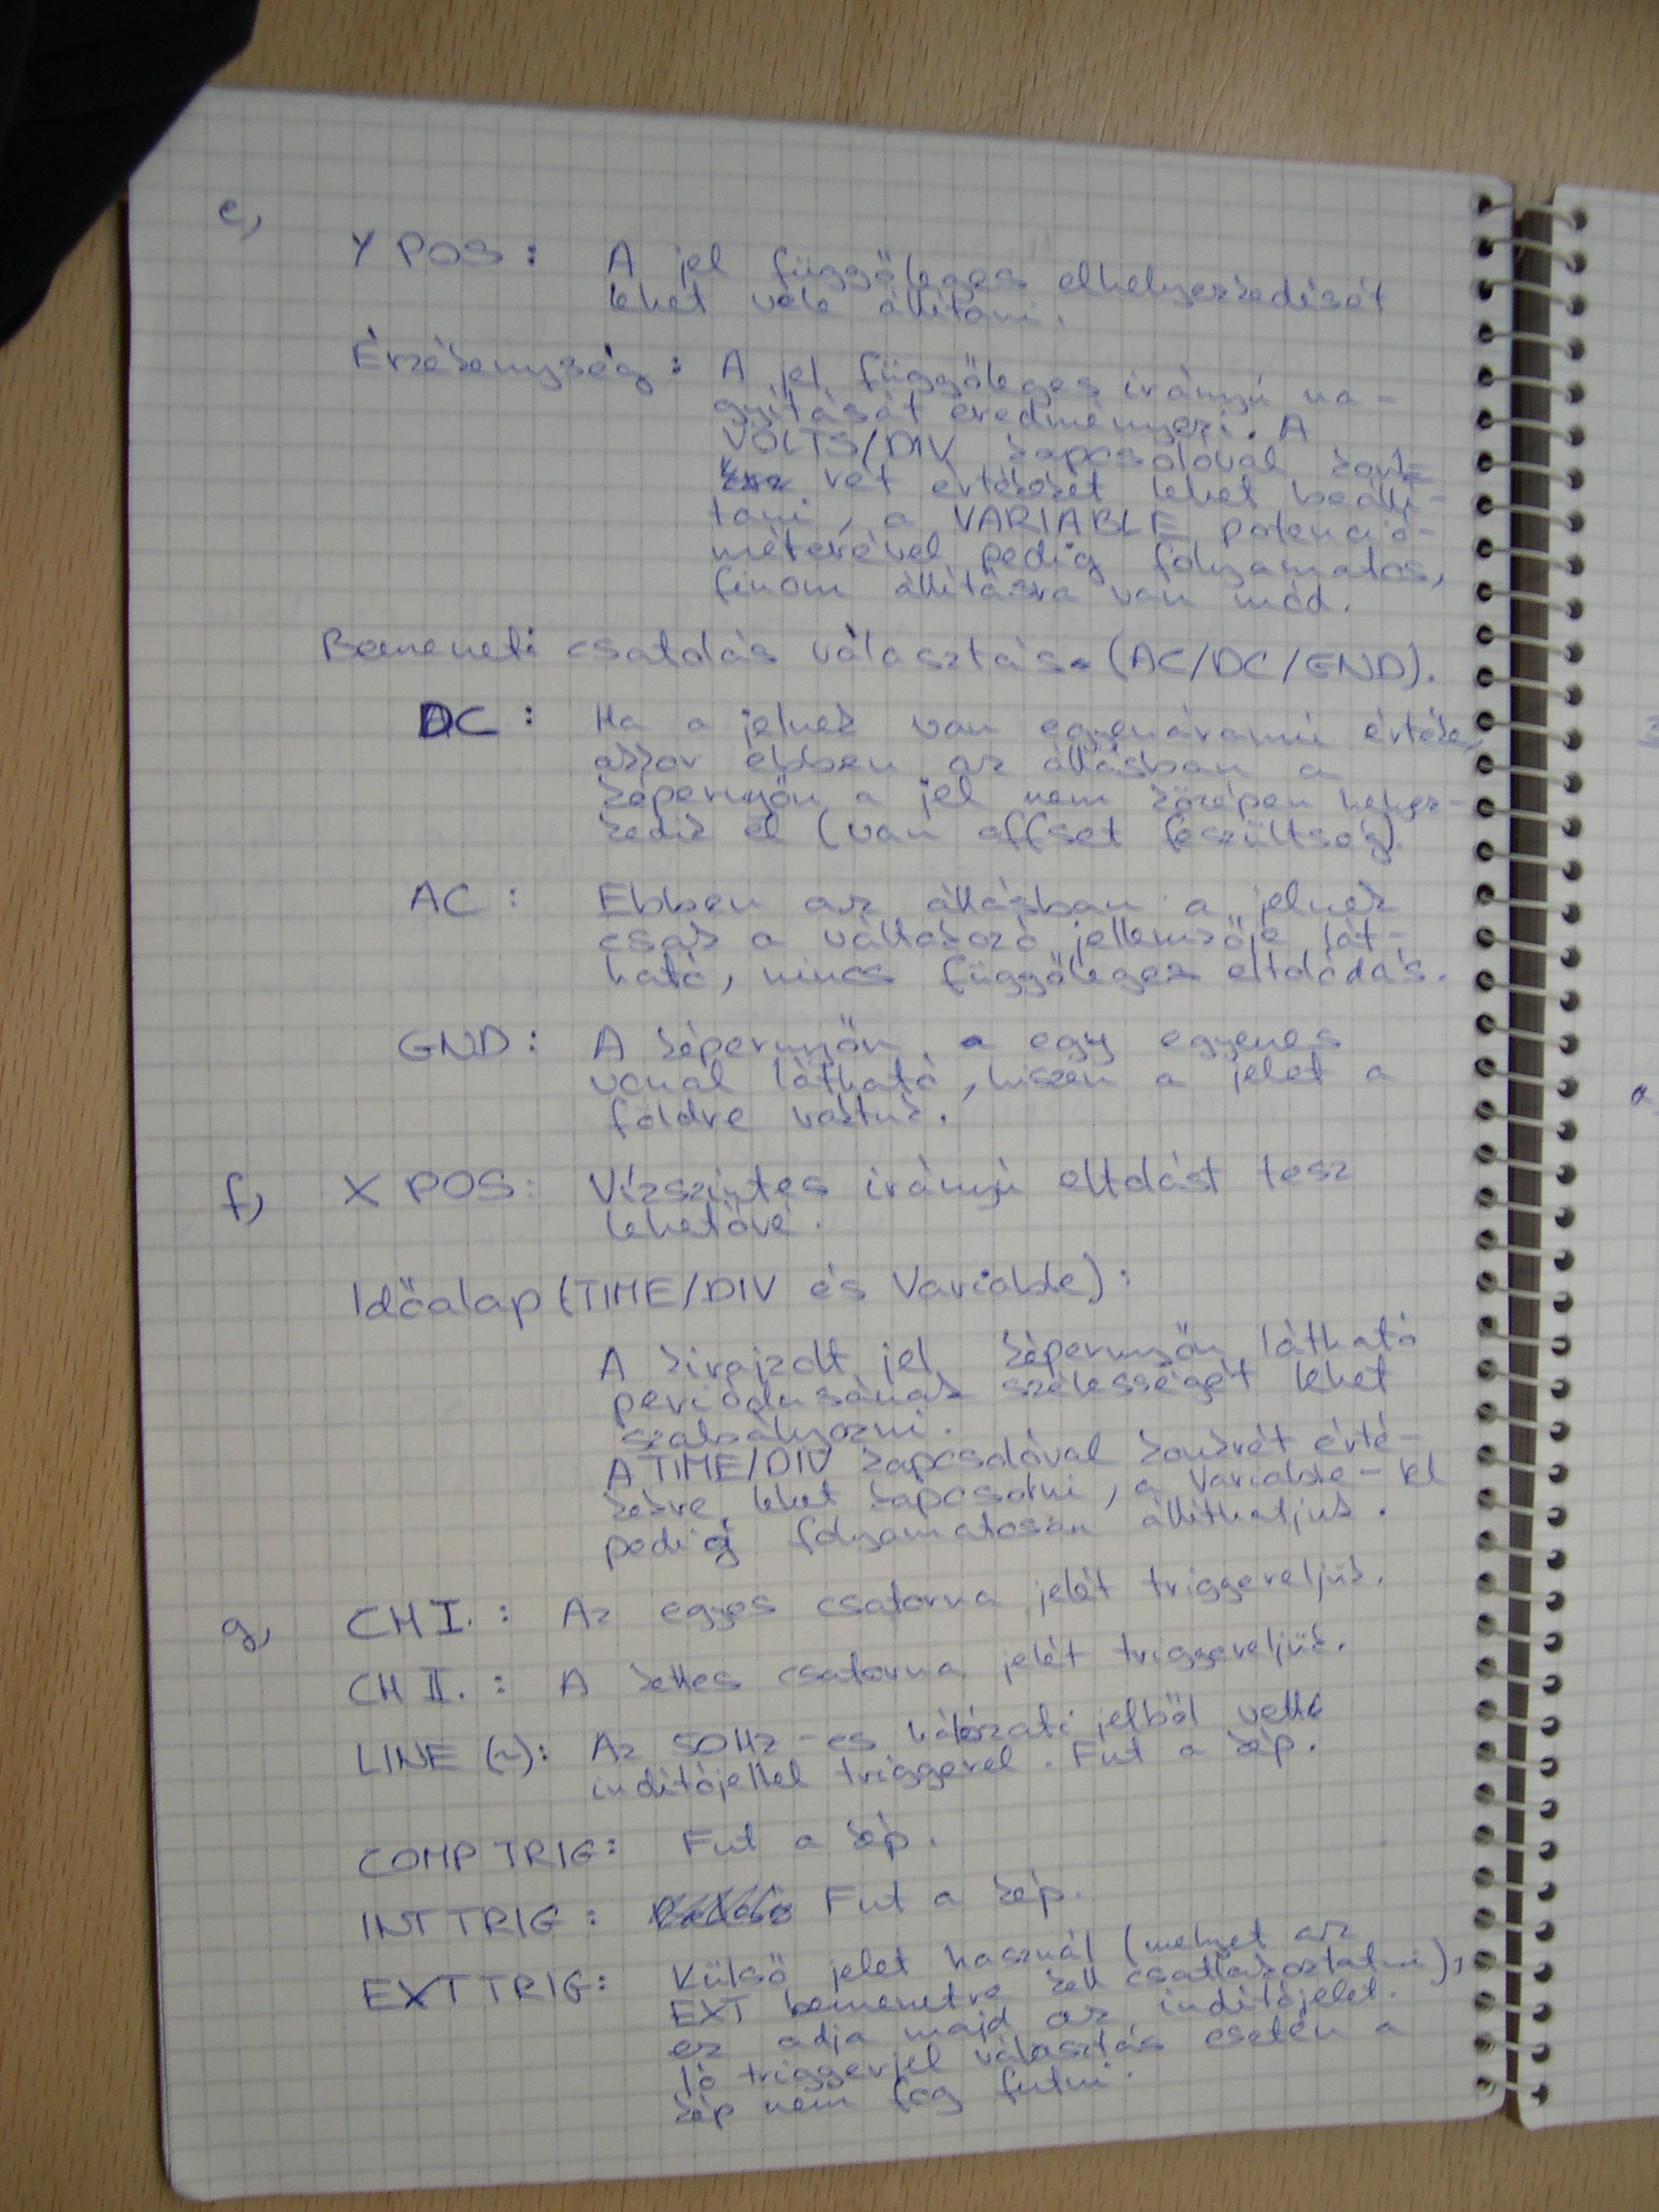 e,
Y POS: A jel függőleges elhelyezkedését
lehet vele állítani.
Érzékenység: A jel függőleges irányú na-
gyítását eredményezi. A
VOLTS/DIV kapcsolóval konk-
rét értékeket lehet beállí-
tani, a VARIABLE potenció-
méterével pedig folyamatos,
finom állításra van mód.
Bemeneti csatolás választás (AC/DC/GND).
DC: Ha a jelnek van egyenáramú értéke,
akkor ebben az állásban a
képernyőn a jel nem középen helyez-
kedik el (van offset feszültség).
AC: Ebben az állásban a jelnek
csak a váltakozó jellemzője lát-
ható, nincs függőleges eltolódás.
GND: A képernyőn egy egyenes
vonal látható, hiszen a jelet a
földre raktuk.
f, X POS: Vízszintes irányú eltolást tesz
lehetővé.
Időalap (TIME/DIV és Variable):
A kirajzolt jel képernyőn látható
periódusának szélességét lehet
szabályozni.
A TIME/DIV kapcsolóval konkrét érté-
kekre lehet kapcsolni, a Variable-lel
pedig folyamatosan állíthatjuk.
g, CH I.: Az egyes csatorna jelét triggereljük.
CH II.: A kettes csatorna jelét triggereljük.
LINE (~): Az 50Hz-es hálózati jelből vett
indítójellel triggerel. Fut a kép.
COMP TRIG: Fut a kép.
INT TRIG: Fut a kép.
EXT TRIG: Külső jelet használ (melyet az
EXT bemenetre kell csatlakoztatni),
ez adja majd az indítójelet.
Jó triggerjel választás esetén a
kép nem fog futni.